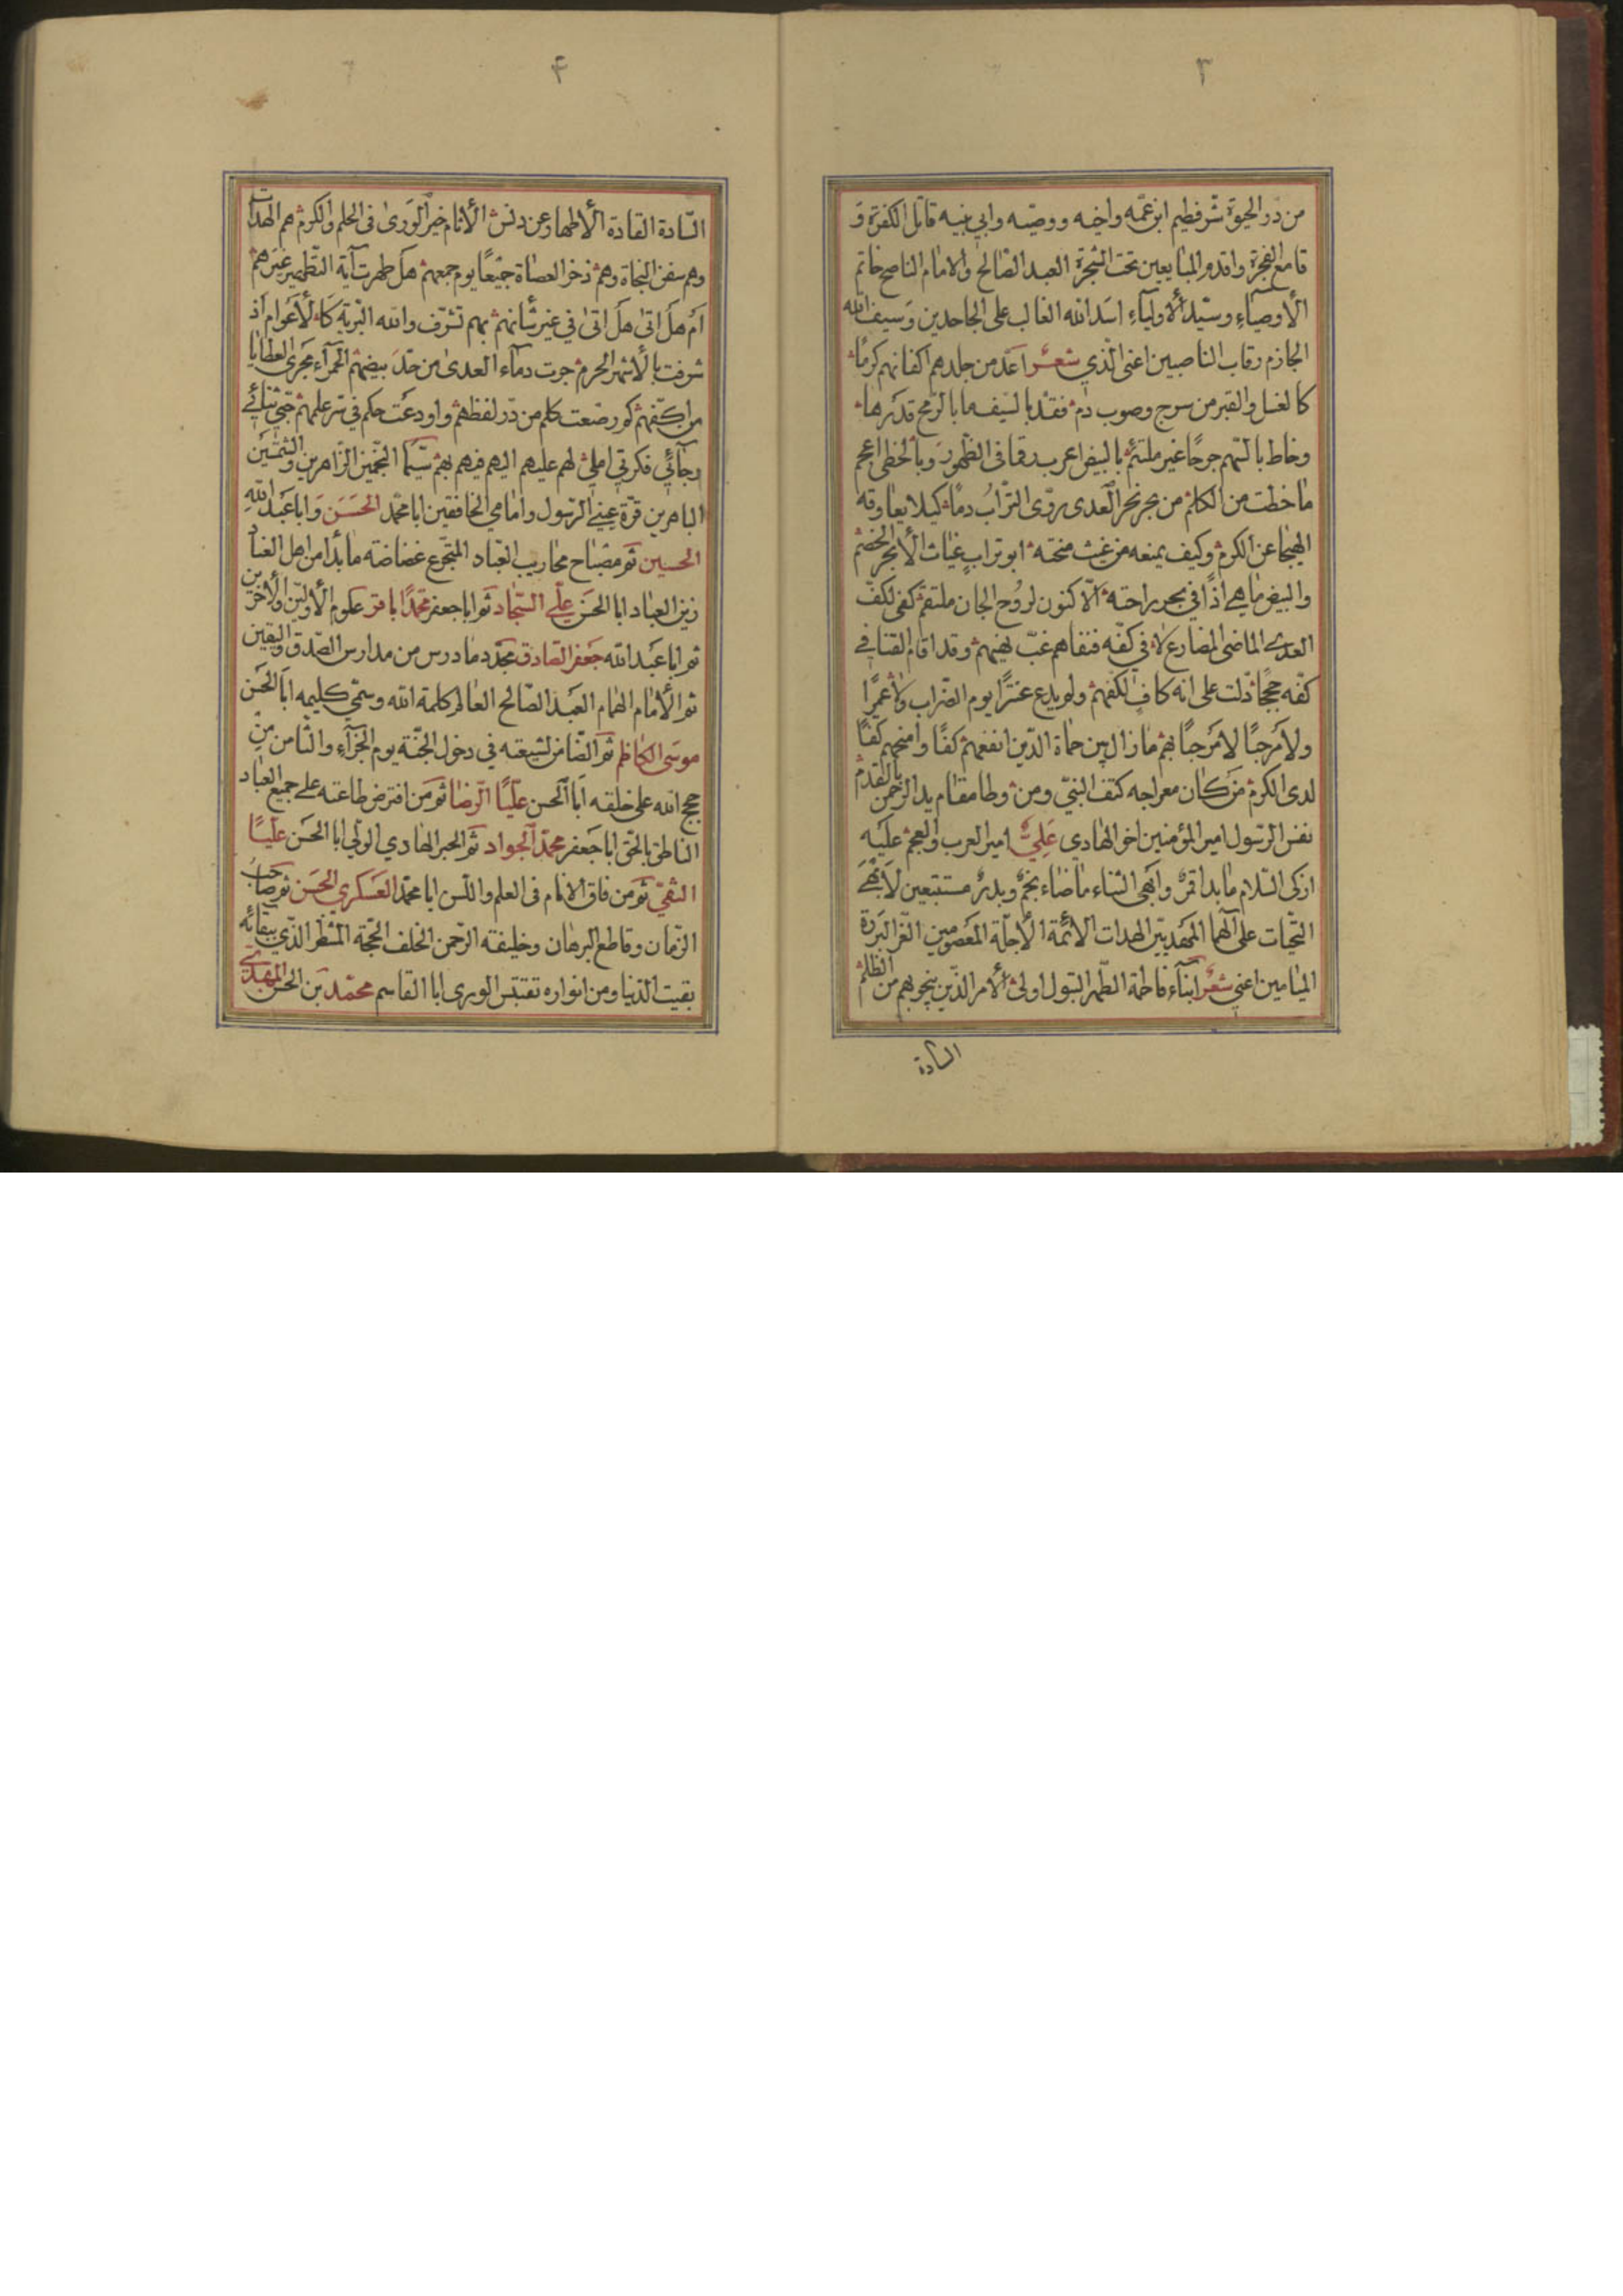 ٣
من درّ الحيوة شرّ فطيم ابن عمّه واخيه ووصيّه وابي بنيه قاتل الكفرة و
قامع الفجرة واقدم المبايعين تحت الشجرة العبد الصّالح والامام الناصح خاتم
الأوصيآء وسيّد الأوليآء اسد الله الغالب على الجاحدين وسيف الله
الجازم رقاب الناصبين اعنى الّذي شعر اعدّ من جلدهم اكفانهم كرمًا
كا لغسل والقبر من سرج وصوب دم فقدّ بالسّيف ما بالرّمح قد
وخاط بالسّهم جرحًا غير ملتئم بالبيض اعرب رقما فى الظّهور وبالخطى اعجم
ما خطّت من الكلم من بحر نحر العدى روّى التّراب دمًا كيلا
الهيجا عن الكرم وكيف يمنعه من غيث منحته ابو تراب غياث الأبحر الخضم
والبيض ما هي اذًا في بحر راحته الّا كنون لروح الجان ملتقم كفى لكفّ
العدى الماضى المضارع لا فى كفّه فنفاهم غبّ نهيهم وقد اقام القنا في
كفّه حججًا دلّت على انه كافٍ لكفهم ولم يدع عنترًا يوم الضّراب ولا عمرًا
ولا مرحبًا لا مرحبًا بهم ما زال بين حماة الدّين انفعهم كفًّا وامنحهم كفًّا
لدى الكرم من كان معراجه كتف النبيّ ومن وطا مقام يد الرّحمن بالقدم
نفس الرّسول امير المؤمنين اخو الهادي عليّ امير العرب والعجم عليه
ازكى السّلام ما بدا قمرٌ وابهى الثناء ما ضاء نجمٌ وبدرٌ مستتبعين لأبهى
التحيّات على آلهما المهديّين الهدات الائمّة الأجلّة المعصومين الغرّ البررة
الميامين اعني شعر ابنآء فاطمة الطّهر البتول اولى الأمر الّذين ينجو بهم من الظلم
السّادة
۴
السّادة القادة الأطهار عن دنس الأثام خير الورىٰ فى الحلم والكرم هم الهدات
وهم سفن النجاة وهم ذخر العصاة جميعًا يوم جمعهم هل طهرت آية التّطهير غيرهم
ام هل اتىٰ هل اتىٰ في غير شانهم بهم تشرّف والله البريّة كا لأعوام اذ
شرفت بالأشهر الحرم جرت دماء العدىٰ من حدّ بيضهم الحمرآء مجرى العطايا
من اكفّهم كم رصّعت كلم من درّ لفظهم واودعت حكم في سرّ علمهم حبّي ثنائي
رجآئي فكرتي املي لهم عليهم اليهم فيهم بهم سيّما النجمين الزّاهرين والشمسين
الباهرين قرّة عيني الرّسول وامامي الخافقين ابا محمّد الحسن وابا عبد الله
الحسين ثم مصباح محاريب العبّاد المتجرّع غضاضة ما بدا من اهل العناد
زين العباد ابا الحسن علي السّجاد ثم ابا جعفر محمّدًا باقر علوم الأولين والأخرين
ثم ابا عبد الله جعفر الصّادق مجدّد ما درس من مدارس الصّدق واليقين
ثم الأمام الهمام العبد الصّالح العالم كلمة الله وسميّ كليمه ابا الحسن
موسى الكاظم ثم الضّامن لشيعته في دخول الجنّة يوم الجزآء والثّامن من
حجج الله على خلقه ابا الحسن عليًّا الرّضا ثم من افترض طاعته على جميع العباد
الناطق بالحقّ ابا جعفر محمّد الجواد ثم الحبر الهادي الولي ابا الحسن عليًّا
النقيّ ثم من فاق الانام فى العلم واللّسن ابا محمّد العسكري الحسن ثم صاحب
الزّمان وقاطع البرهان وخليفة الرّحمن الخلف الحجّة المنتظر الذي ببقائه
بقيت الدّنيا ومن انواره تقتبس الورى ابا القاسم محمّد بن الحسن المهديّ